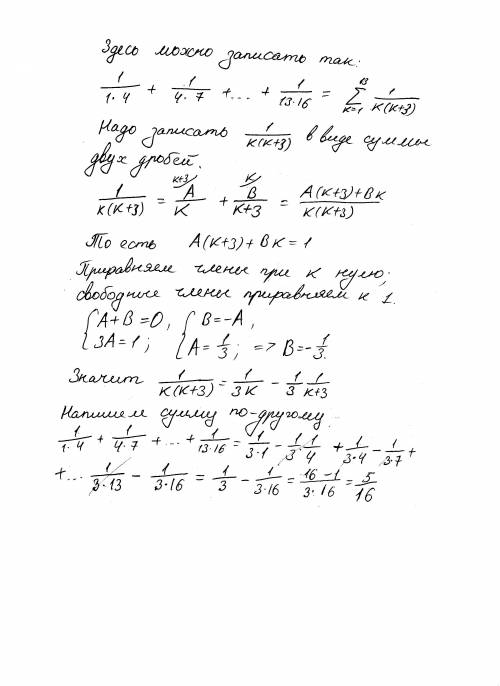 Здесь можно записать так:
1/(1·4) + 1/(4·7) + ... + 1/(13·16) = ∑_{k=1}^{13} 1/(k(k+3))
Надо записать 1/(k(k+3)) в виде суммы
двух дробей.
1/(k(k+3)) = A/k (k+3) + B/(k+3) (k) = (A(k+3)+Bk)/(k(k+3))
То есть A(k+3)+Bk=1
Приравняем члены при k нулю;
свободные члены приравняем к 1.
{A+B=0, {B=-A,
{3A=1; {A=1/3; => B=-1/3.
Значит 1/(k(k+3)) = 1/(3k) - 1/3 1/(k+3)
Напишем сумму по-другому
1/(1·4) + 1/(4·7) + ... + 1/(13·16) = 1/(3·1) - 1/3·1/4 + 1/(3·4) - 1/(3·7) +
+... 1/(3·13) - 1/(3·16) = 1/3 - 1/(3·16) = (16-1)/(3·16) = 5/16